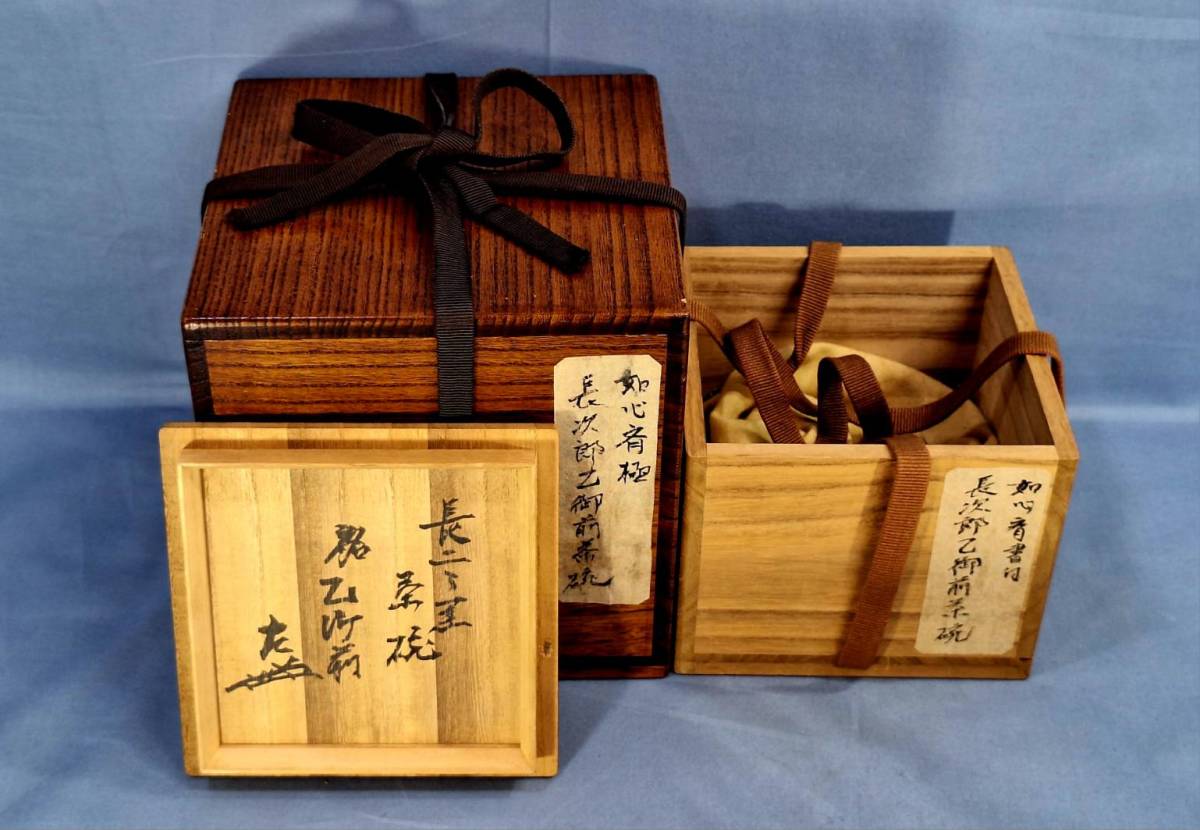 如心斉極
長次郎乙御前茶碗
如心斉書付
長次郎乙御前茶碗
長二
茶碗
銘乙御前
左